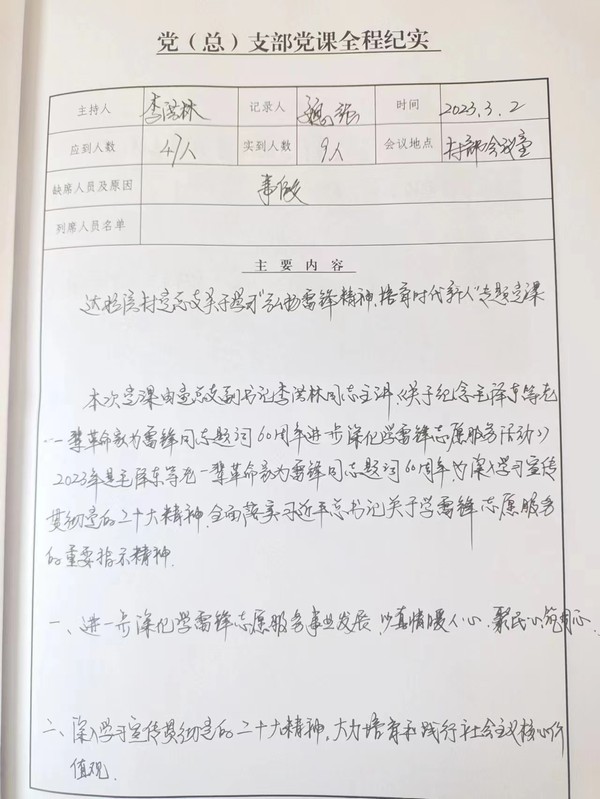 党（总）支部党课全程纪实
主持人 李洪林 记录人 时间 2023.3.2
应到人数 47人 实到人数 9人 会议地点 村部会议室
缺席人员及原因
列席人员名单
主要内容
村党总支关于学习“弘扬雷锋精神、培育时代新人”专题党课
本次党课由党总支副书记李洪林同志主讲，《关于纪念毛泽东等老
一辈革命家为雷锋同志题词60周年进步深化学雷锋志愿服务活动》
2023年是毛泽东等老一辈革命家为雷锋同志题词60周年，为深入学习宣传
贯彻党的二十大精神，全面落实习近平总书记关于学雷锋志愿服务
的重要指示精神.
一、进一步深化学雷锋志愿服务事业发展，以真情暖人心、聚民心筑同心.
二、深入学习宣传贯彻党的二十大精神，大力培育和践行社会主义核心价
值观.